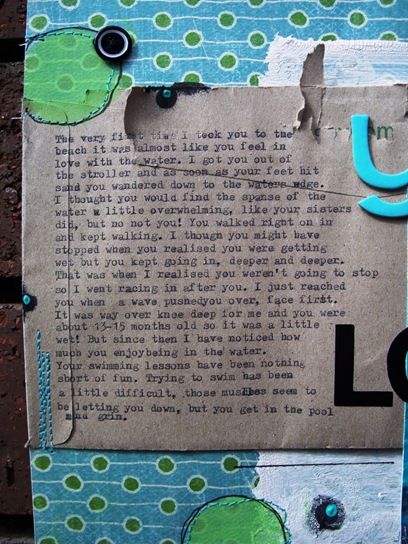 The very first time I took you to the
beach it was almost like you feel in
love with the water. I got you out of
the stroller and as soon as your feet hit
sand you wandered down to the waters edge.
I thought you would find the spanse of the
water a little overwhelming, like your sisters
did, but no not you! You walked right on in
and kept walking. I though you might have
stopped when you realised you were getting
wet but you kept going in, deeper and deeper.
That was when I realised you weren't going to stop
so I went racing in after you. I just reached
you when a wave pushedyou over, face first.
It was way over knee deep for me and you were
about 13-15 months old so it was a little
wet! But since then I have noticed how
much you enjoybeing in the water.
Your swimming lessons have been nothing
short of fun. Trying to swim has been
a little difficult, those muscles seem to
be letting you down, but you get in the pool
and grin.
LO